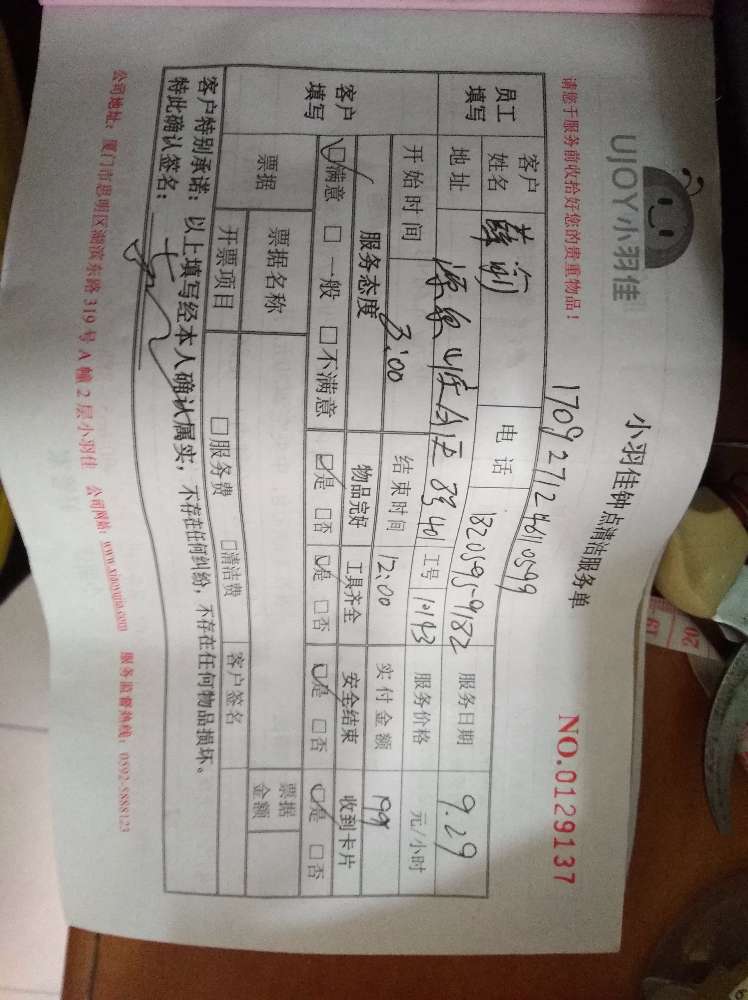 UJOY小羽佳
小羽佳钟点清洁服务单
NO.0129137
请您于服务前收拾好您的贵重物品！
员工填写
客户姓名
电话
服务日期 9.29
地址
工号 10143
服务价格 元/小时
开始时间 3:00
结束时间 12:00
实付金额 199
客户填写
服务态度 物品完好 工具齐全 安全结束 收到卡片
☑满意 □一般 □不满意 ☑是 □否 ☑是 □否 ☑是 □否 ☑是 □否
票据
票据名称
票据金额
开票项目 □服务费 □清洁费 客户签名
客户特别承诺：以上填写经本人确认属实，不存在任何纠纷，不存在任何物品损坏。
特此确认签名：
公司地址：厦门市思明区湖滨东路319号A幢2层小羽佳 公司网站：www.xiaoyujia.com 服务监督热线：0592-5888123
20
19